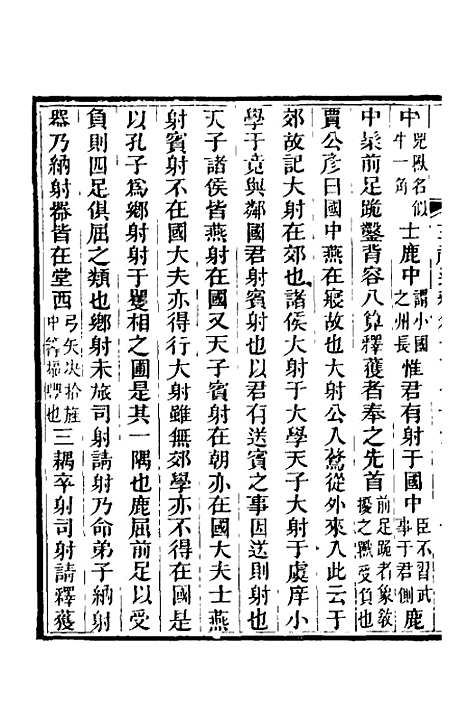 中兕獸名似牛一角士鹿中謂小國之州長惟君有射于國中臣不習武事于君側鹿
中髤前足跪鑿背容八算釋獲者奉之先首前足跪者象教擾之獸受負也
賈公彥曰國中燕在寢故也大射公入驁從外來入此云于
郊故記大射在郊也諸侯大射于大學天子大射于虞庠小
學于竟與鄰國君射賓射也以君有送賓之事因送則射也
天子諸侯皆燕射在國又天子賓射在朝亦在國大夫士燕
射賓射不在國大夫亦得行大射雖無郊學亦不得在國是
以孔子為鄉射射于矍相之圃是其一隅也鹿屈前足以受
負則四足俱屈之類也鄉射未旅司射請射乃命弟子納射
器乃納射器皆在堂西弓矢決拾旌中籌楅豐也三耦卒射司射請釋獲